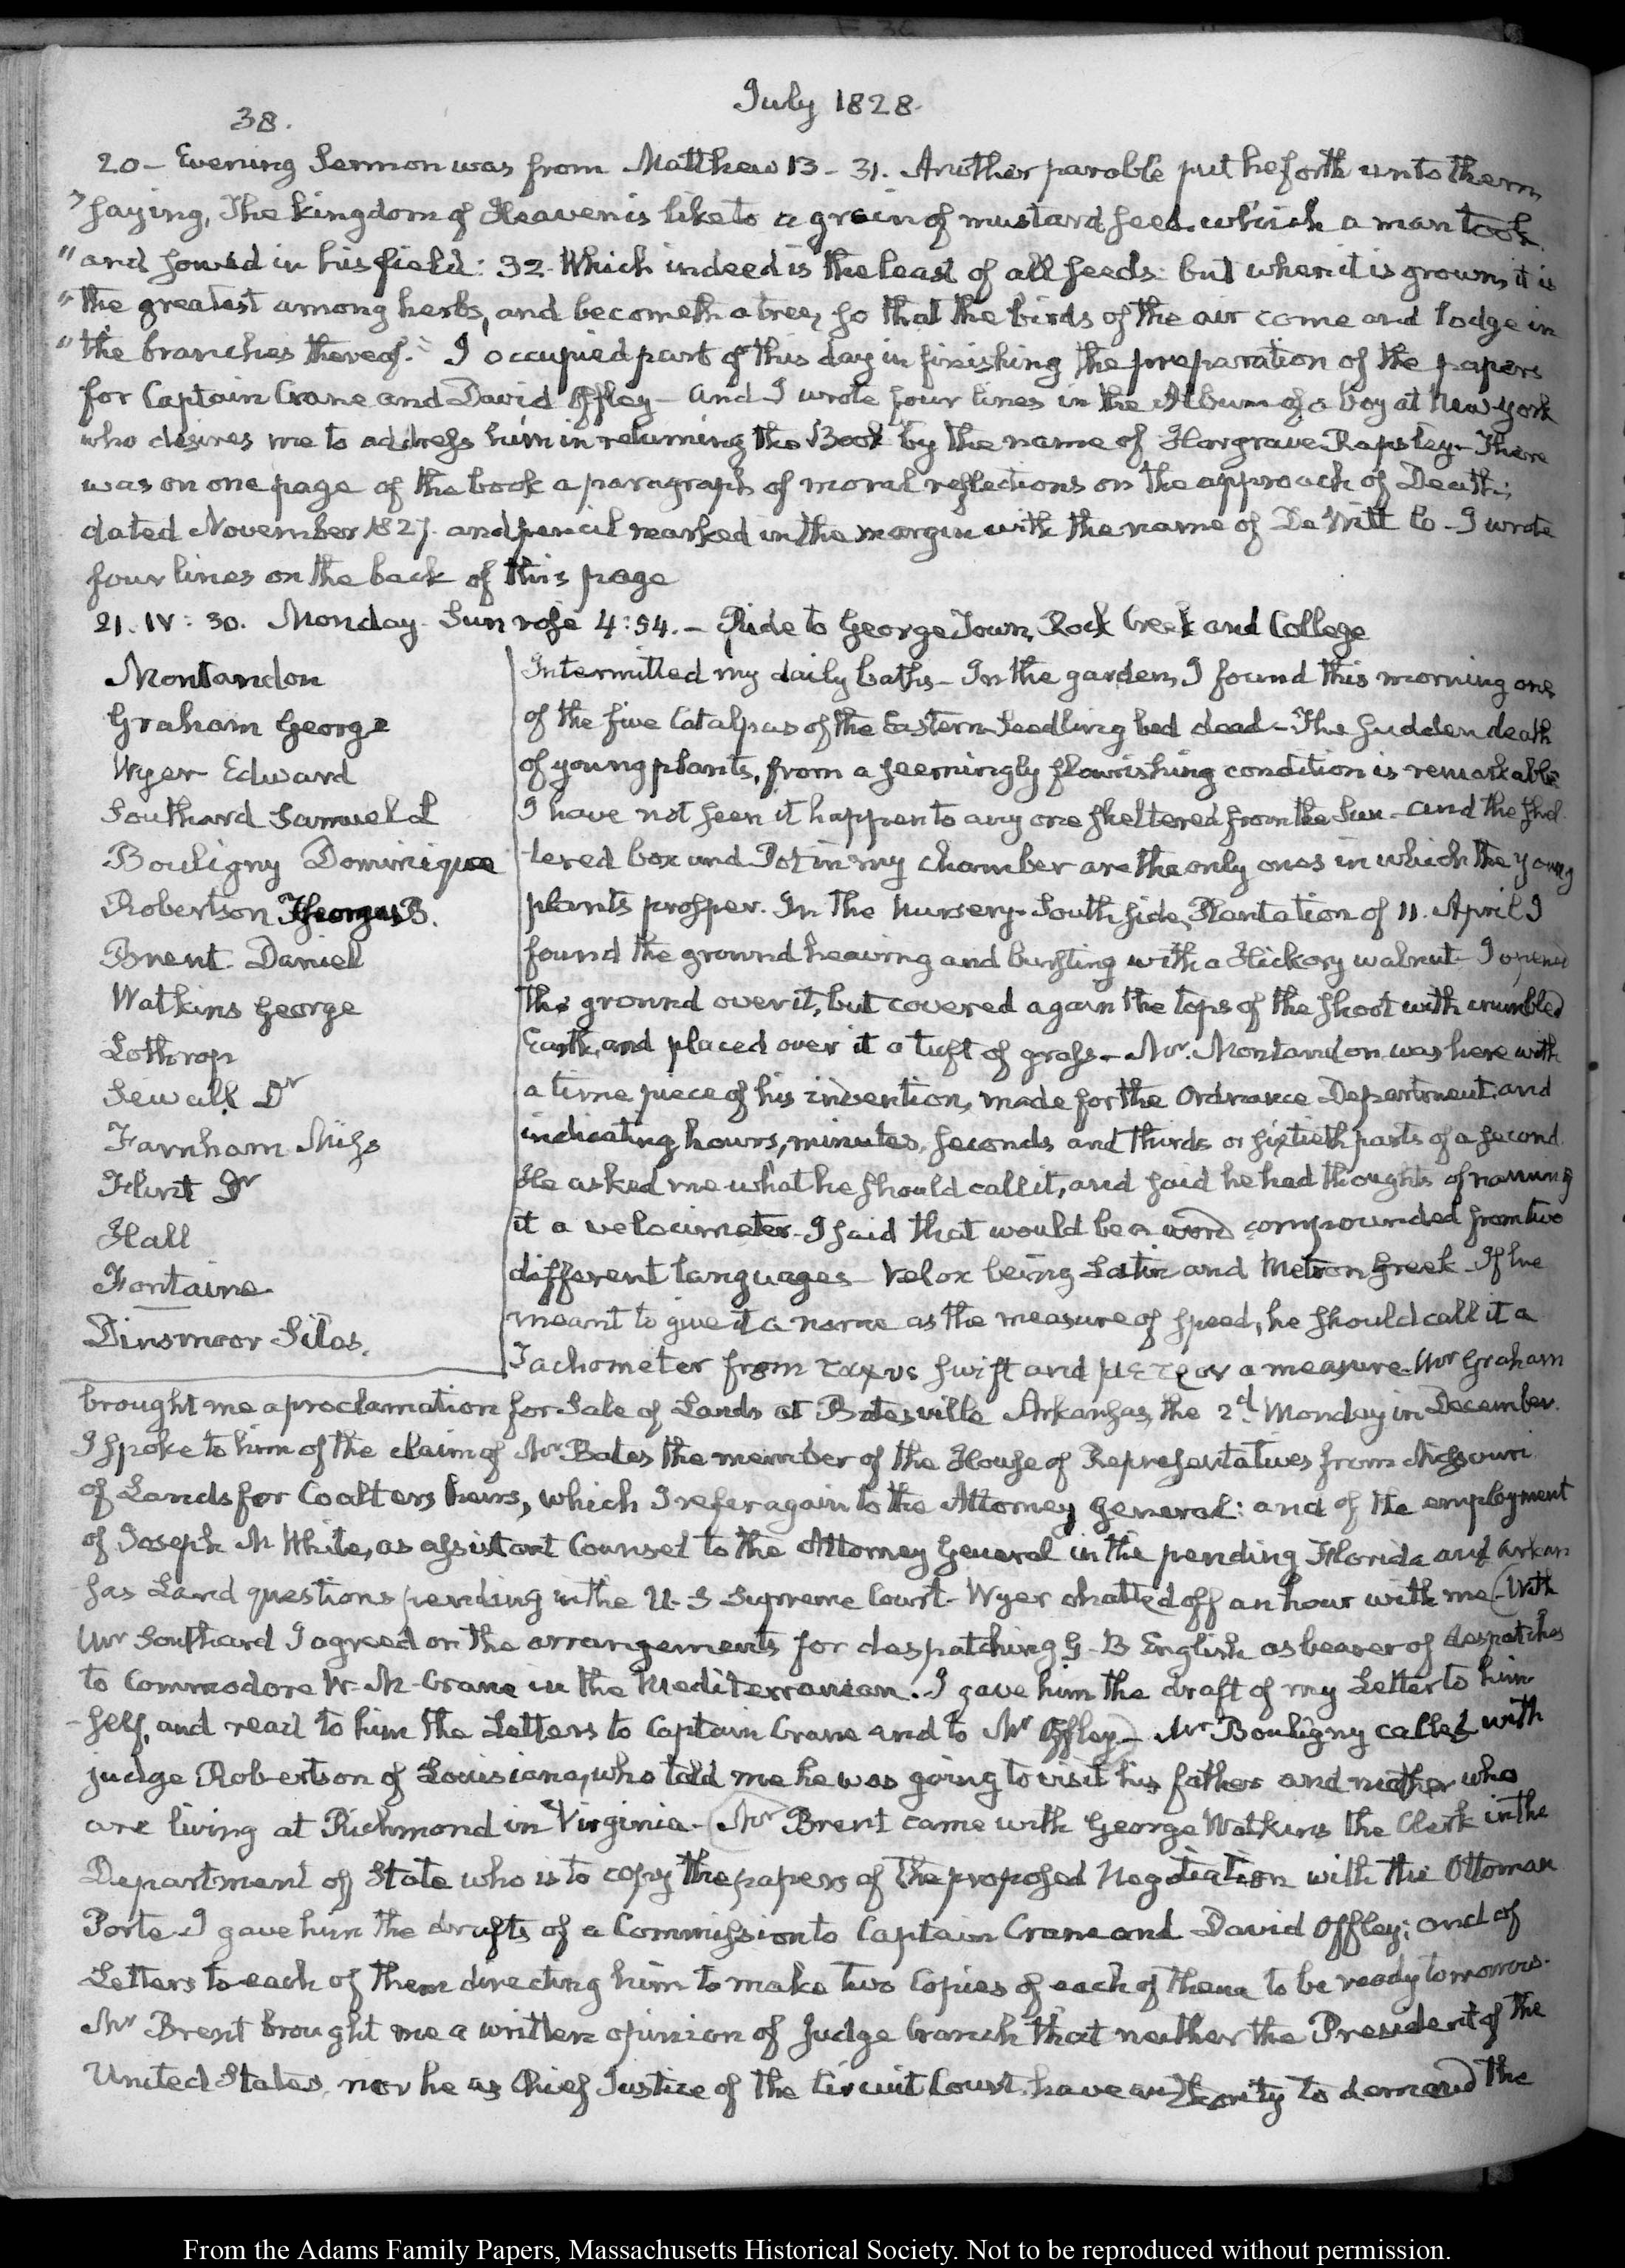 July 1828.
38.
20 - Evening Sermon was from Matthew 13 - 31. Another parable put he forth unto them,
" saying, The kingdom of Heaven is like to a grain of mustard seed. which a man took
" and sowed in his field: 32. Which indeed is the least of all seeds: but when it is grown, it is
" the greatest among herbs, and becometh a tree, so that the birds of the air come and lodge in
" the branches thereof." I occupied part of this day in finishing the preparation of the papers
for Captain Crane and David Offley - and I wrote four lines in the Album of a boy at New-York
who desires me to address him in returning the Book by the name of Hargrave Rapsley - There
was on one page of the book a paragraph of moral reflections on the approach of Death;
dated November 1827. and pencil marked in the margin with the name of De Witt Co - I wrote
four lines on the back of this page
21. IV: 30. Monday. Sun rose 4:54. - Ride to George Town, Rock Creek and College
Montandon
Graham George
Wyer Edward
Southard Samuel L
Bouligny Dominique
Robertson Thomas B.
Brent Daniel
Watkins George
Lothrop
Sewall Dr
Farnham Miss
Flint Dr
Hall
Fontaine
Dinsmoor Silas.
Intermitted my daily baths - In the garden, I found this morning one
of the five Catalpas of the Eastern Seedling bed dead - The sudden death
of young plants, from a seemingly flourishing condition is remarkable
I have not seen it happen to any one sheltered from the Sun - and the shel
-tered box and Pot in my chamber are the only ones in which the young
plants prosper. In the Nursery - South side, Plantation of 11. April I
found the ground heaving and bursting with a Hickory walnut - I opened
the ground over it, but covered again the tops of the shoot with crumbled
Earth, and placed over it a tuft of grass - Mr. Montandon was here with
a time piece of his invention, made for the Ordnance Department, and
indicating hours, minutes, seconds and thirds or sixtieth parts of a second.
He asked me what he should call it, and said he had thoughts of naming
it a velocimeter. I said that would be a word compounded from two
different languages - Velox being Latin and Metron Greek - If he
meant to give it a name as the measure of speed, he should call it a
Tachometer from ταχυς swift and μετρον a measure. Mr Graham
brought me a proclamation for Sale of Lands at Batesville Arkansas, the 2d. Monday in December.
I spoke to him of the claim of Mr Bates the member of the House of Representatives from Missouri
of Lands for Coalters heirs, which I refer again to the Attorney General: and of the employment
of Joseph M White, as assistant Counsel to the Attorney General in the pending Florida and Arkan
sas Land questions pending in the U. S Supreme Court - Wyer chatted off an hour with me - With
Mr Southard I agreed on the arrangements for despatching G. B English as bearer of despatches
to Commodore W. M. Crane in the Mediterranean. I gave him the draft of my Letter to him
-self, and read to him the Letters to Captain Crane and to Mr Offley - Mr Bouligny called with
judge Robertson of Louisiana, who told me he was going to visit his father and mother who
are living at Richmond in Virginia - Mr Brent came with George Watkins the Clerk in the
Department of State who is to copy the papers of the proposed Negotiation with the Ottoman
Porte - I gave him the drafts of a Commission to Captain Crane and David Offley; and of
Letters to each of them directing him to make two Copies of each of them to be ready tomorrow.
Mr Brent brought me a written opinion of Judge Cranch that neither the President of the
United States, nor he as Chief Justice of the Circuit Court have authority to demand the
From the Adams Family Papers, Massachusetts Historical Society. Not to be reproduced without permission.